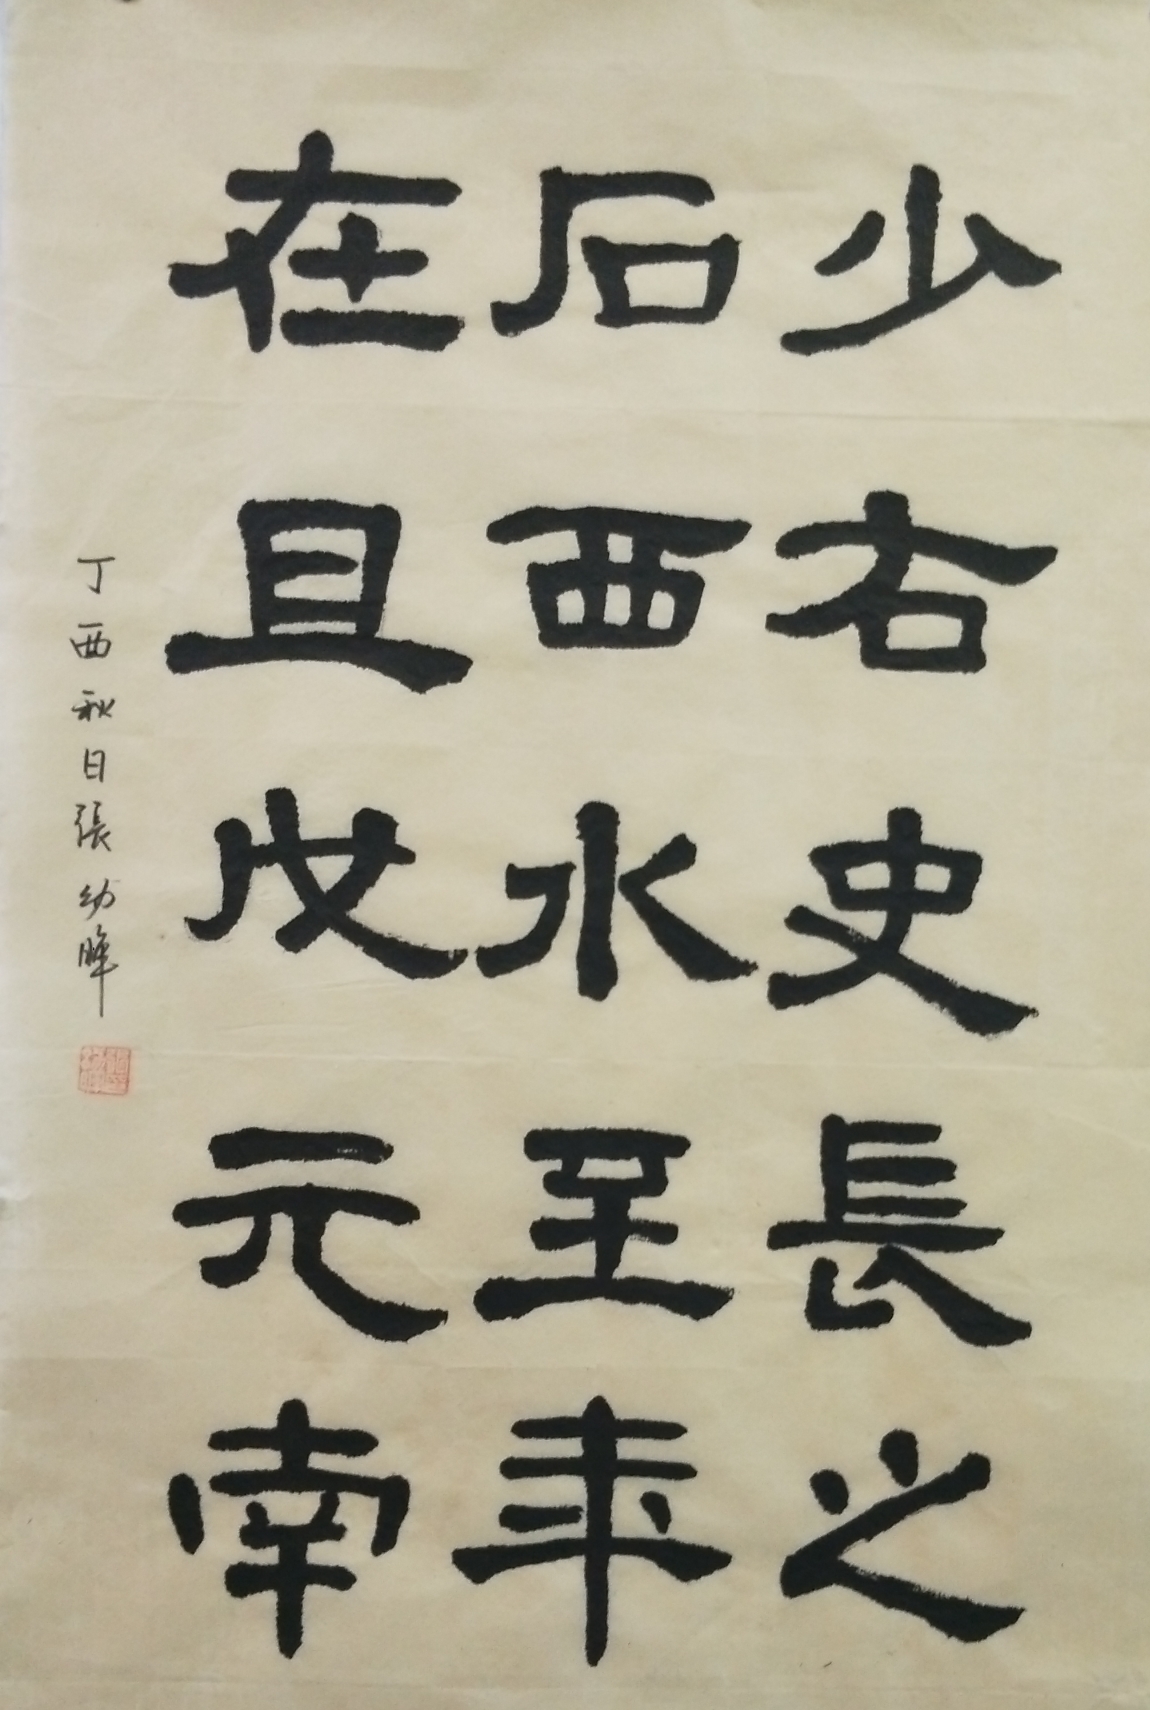 少右史長之
石西水至年
在且戊元南
丁酉秋日張幼暉